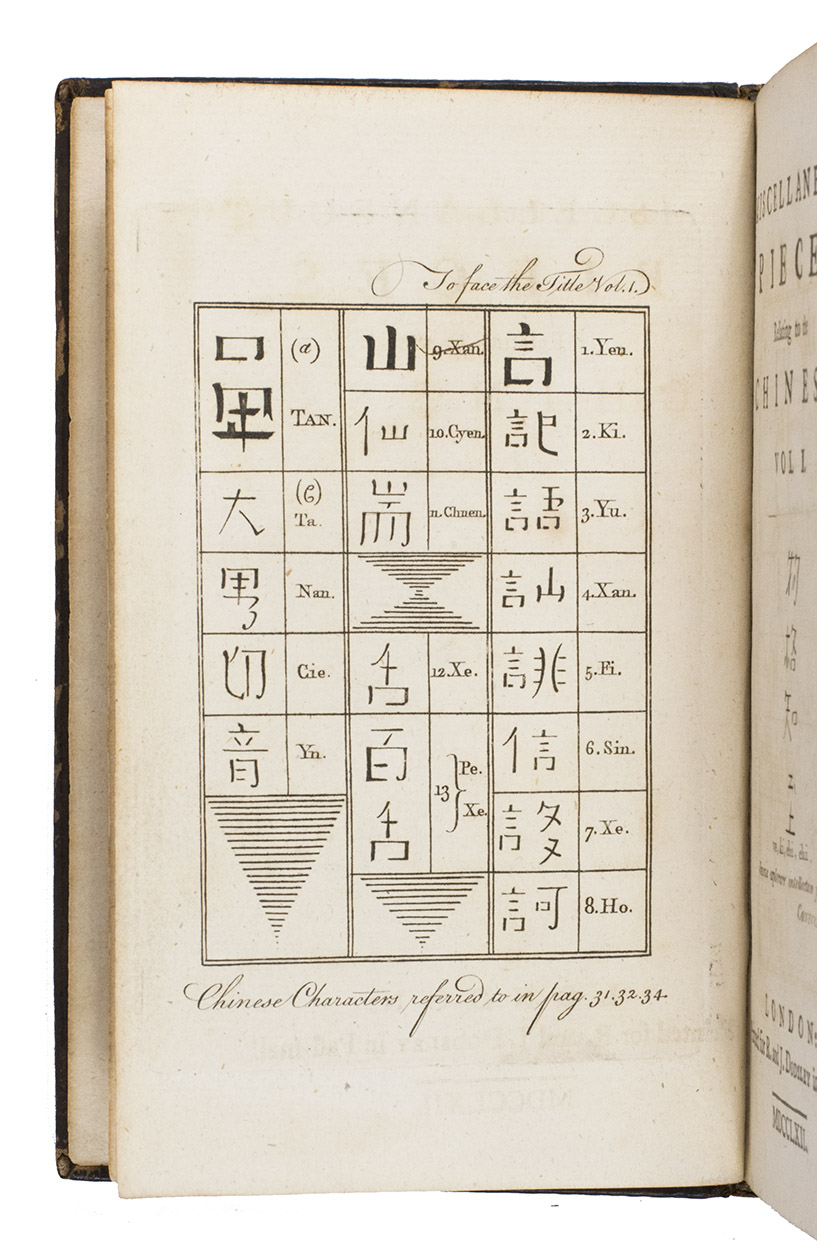 To face the Title Vol. 1.
口 (a)
TAN.
大 (b)
Ta.
男 Nan.
切 Cie.
音 Yn.
山 9. Xan.
仙 10. Cyen.
耑 11. Chuen.
舌 12. Xe.
百 13 Pe.
舌 Xe.
言 1. Yen.
記 2. Ki.
語 3. Yu.
訕 4. Xan.
誹 5. Fi.
信 6. Sin.
設 7. Xe.
訶 8. Ho.
Chinese Characters referred to in pag. 31. 32. 34
ISCELLANE
PIECE
Relating to the
CHINES
VOL I.
物
格
知
LONDON:
for R. and J. DODSLEY in
MDCCLXII.